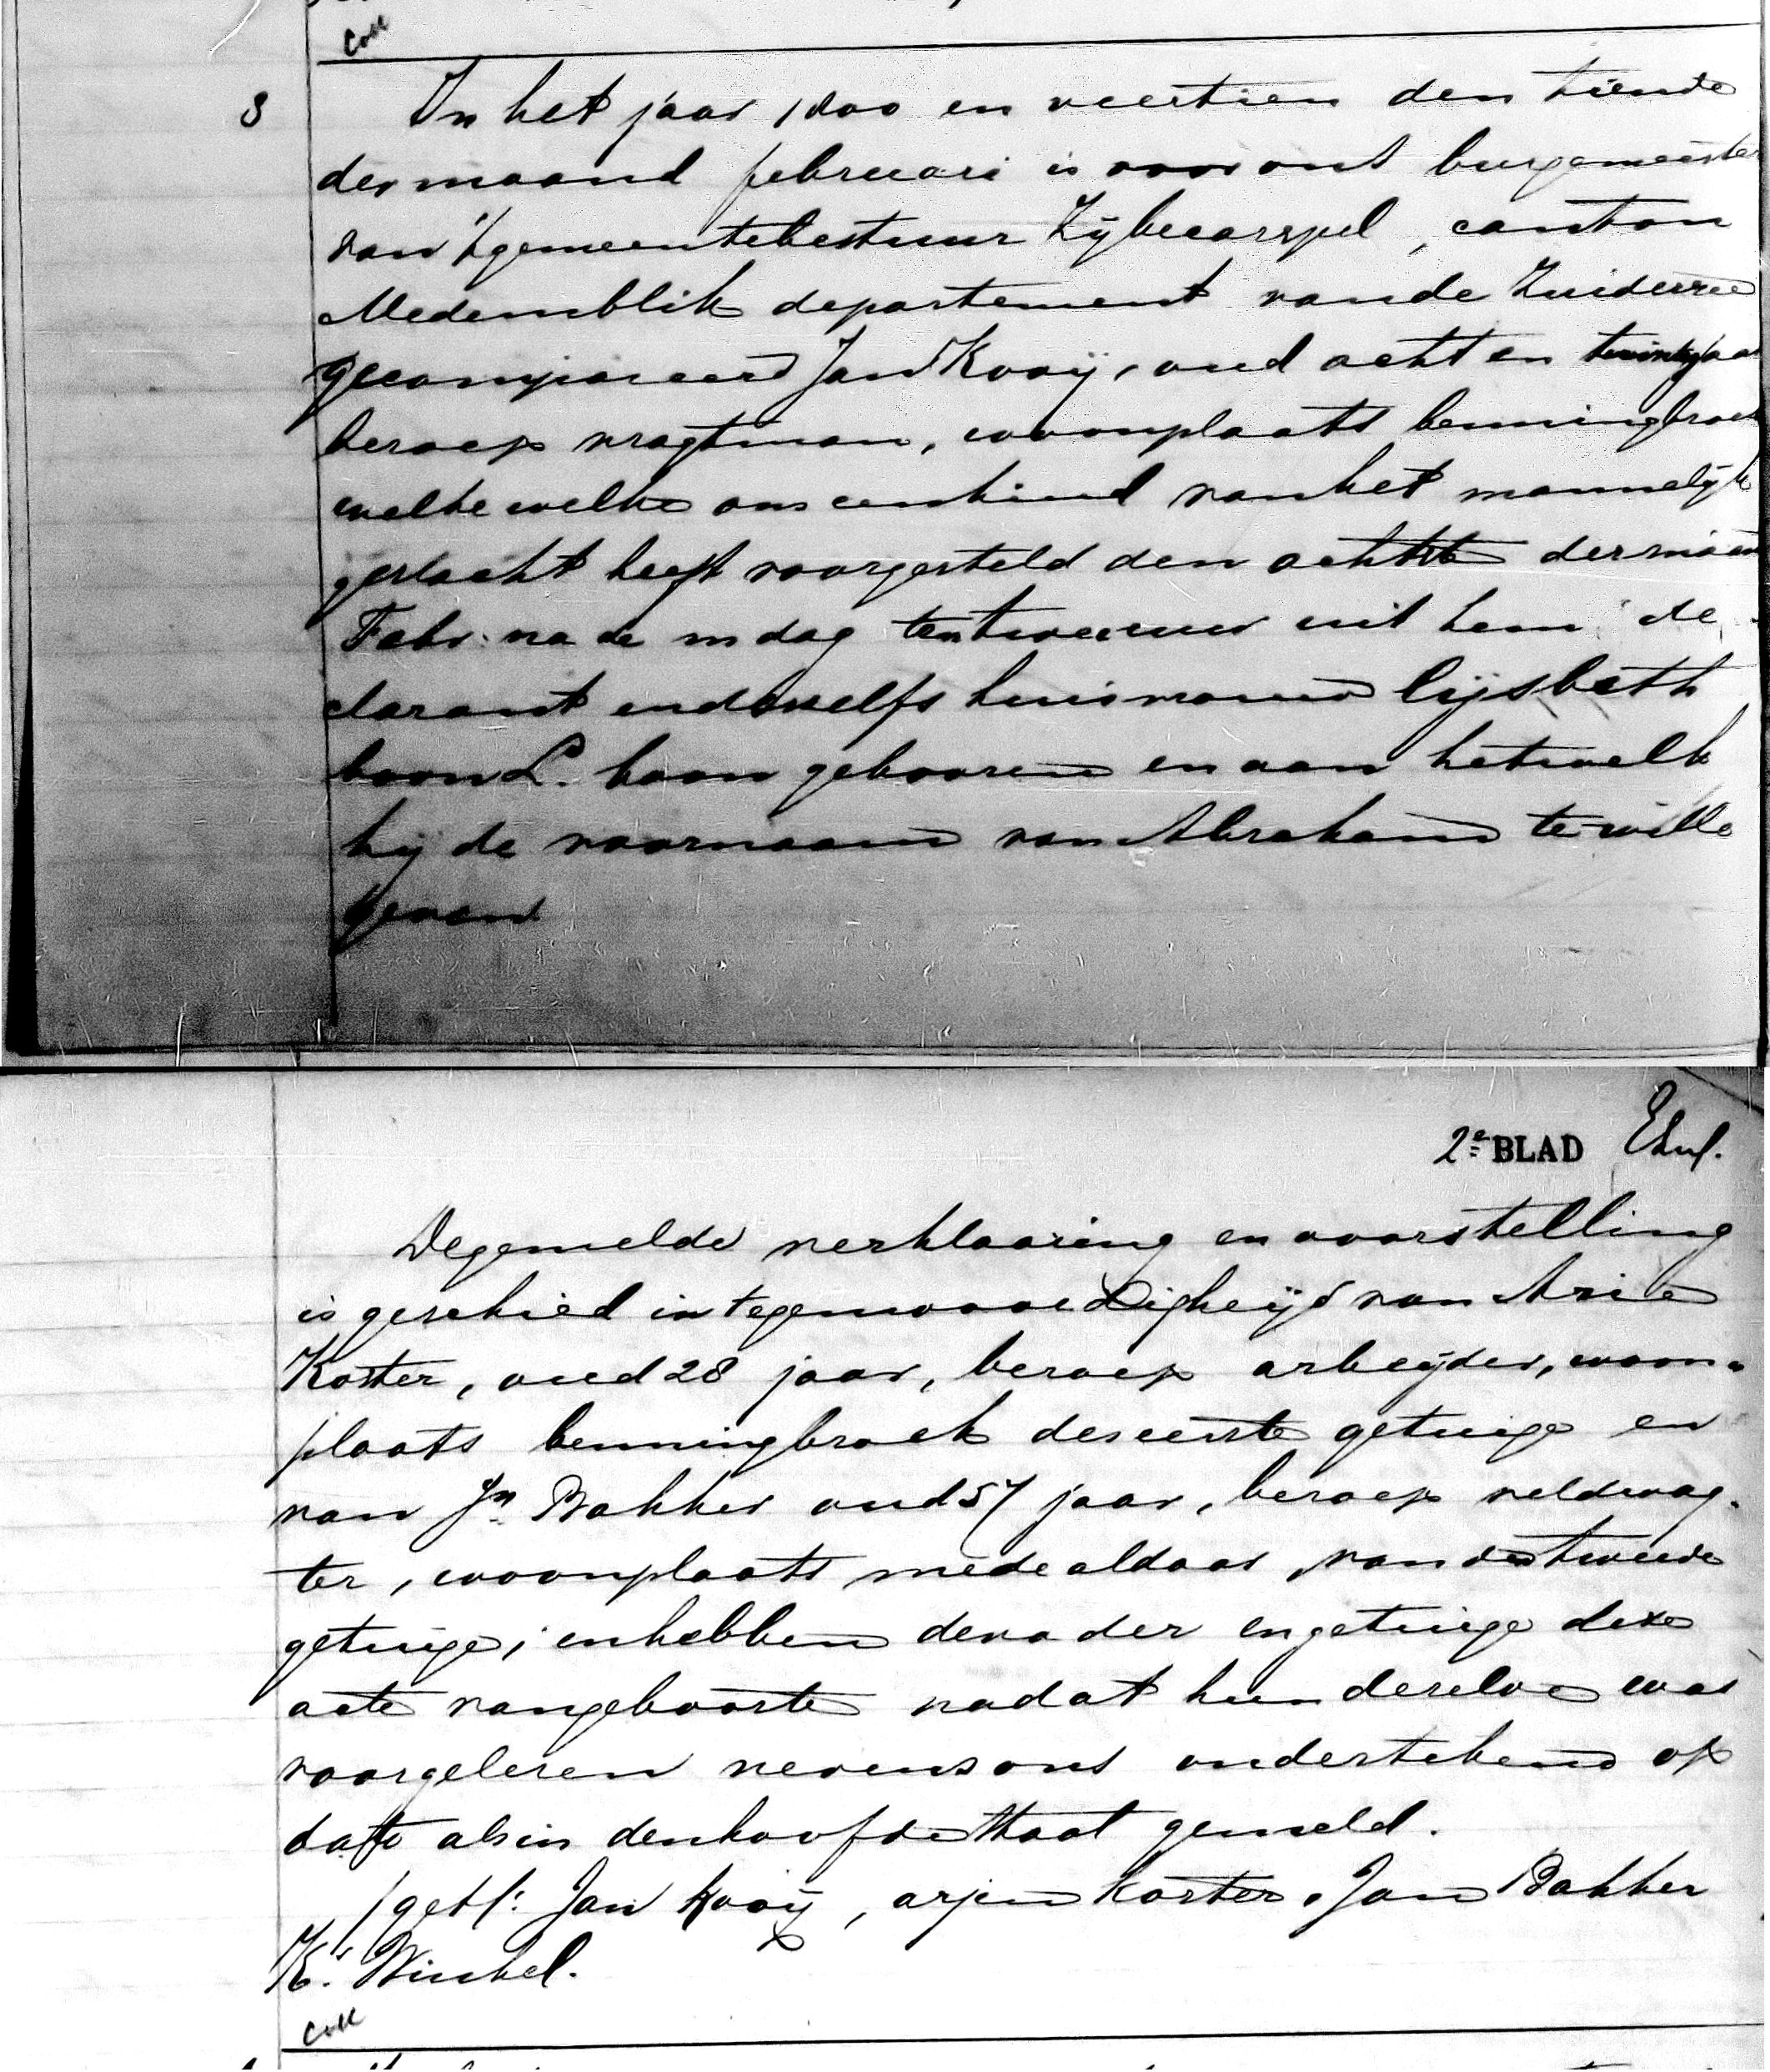 Coll
3 In het jaar 1800 en veertien den tiende
der maand februari is voor ons burgemeester
van 't gemeentebestuur Zijbecarspel, canton
Medemblik departement van de Zuiderzee
gecompareerd Jan Kooij, oud acht en twintig jaar
beroep vragtman, woonplaats benningbroek
welke welke ons een kind van het mannelijk
geslacht heeft voorgesteld den achtste der maand
Febr. na de mdag ten twee uur uit hem de
clarant en deszelfs huisvrouw lijsbeth
boon L. boon gebooren en aan hetwelk
hij de voornaam van Abraham te wille
geven
2e BLAD
De gemelde verklaaring en voorstelling
is geschied in tegenwoordigheijd van Arie
Koster, oud 28 jaar, beroep arbeijder, woon-
plaats benningbroek des eerste getuige en
van Jn Bakker oud 57 jaar, beroep veldwag-
ter, woonplaats mede aldaar, van des tweede
getuige; en hebben de vader en getuige deze
acte van geboorte nadat hun derselve was
voorgelesen nevens ons ondertekend op
dato als in den hoofde staat gemeld.
/get/: Jan Kooij, arjen koster, Jan Bakker
K. Winkel.
Coll